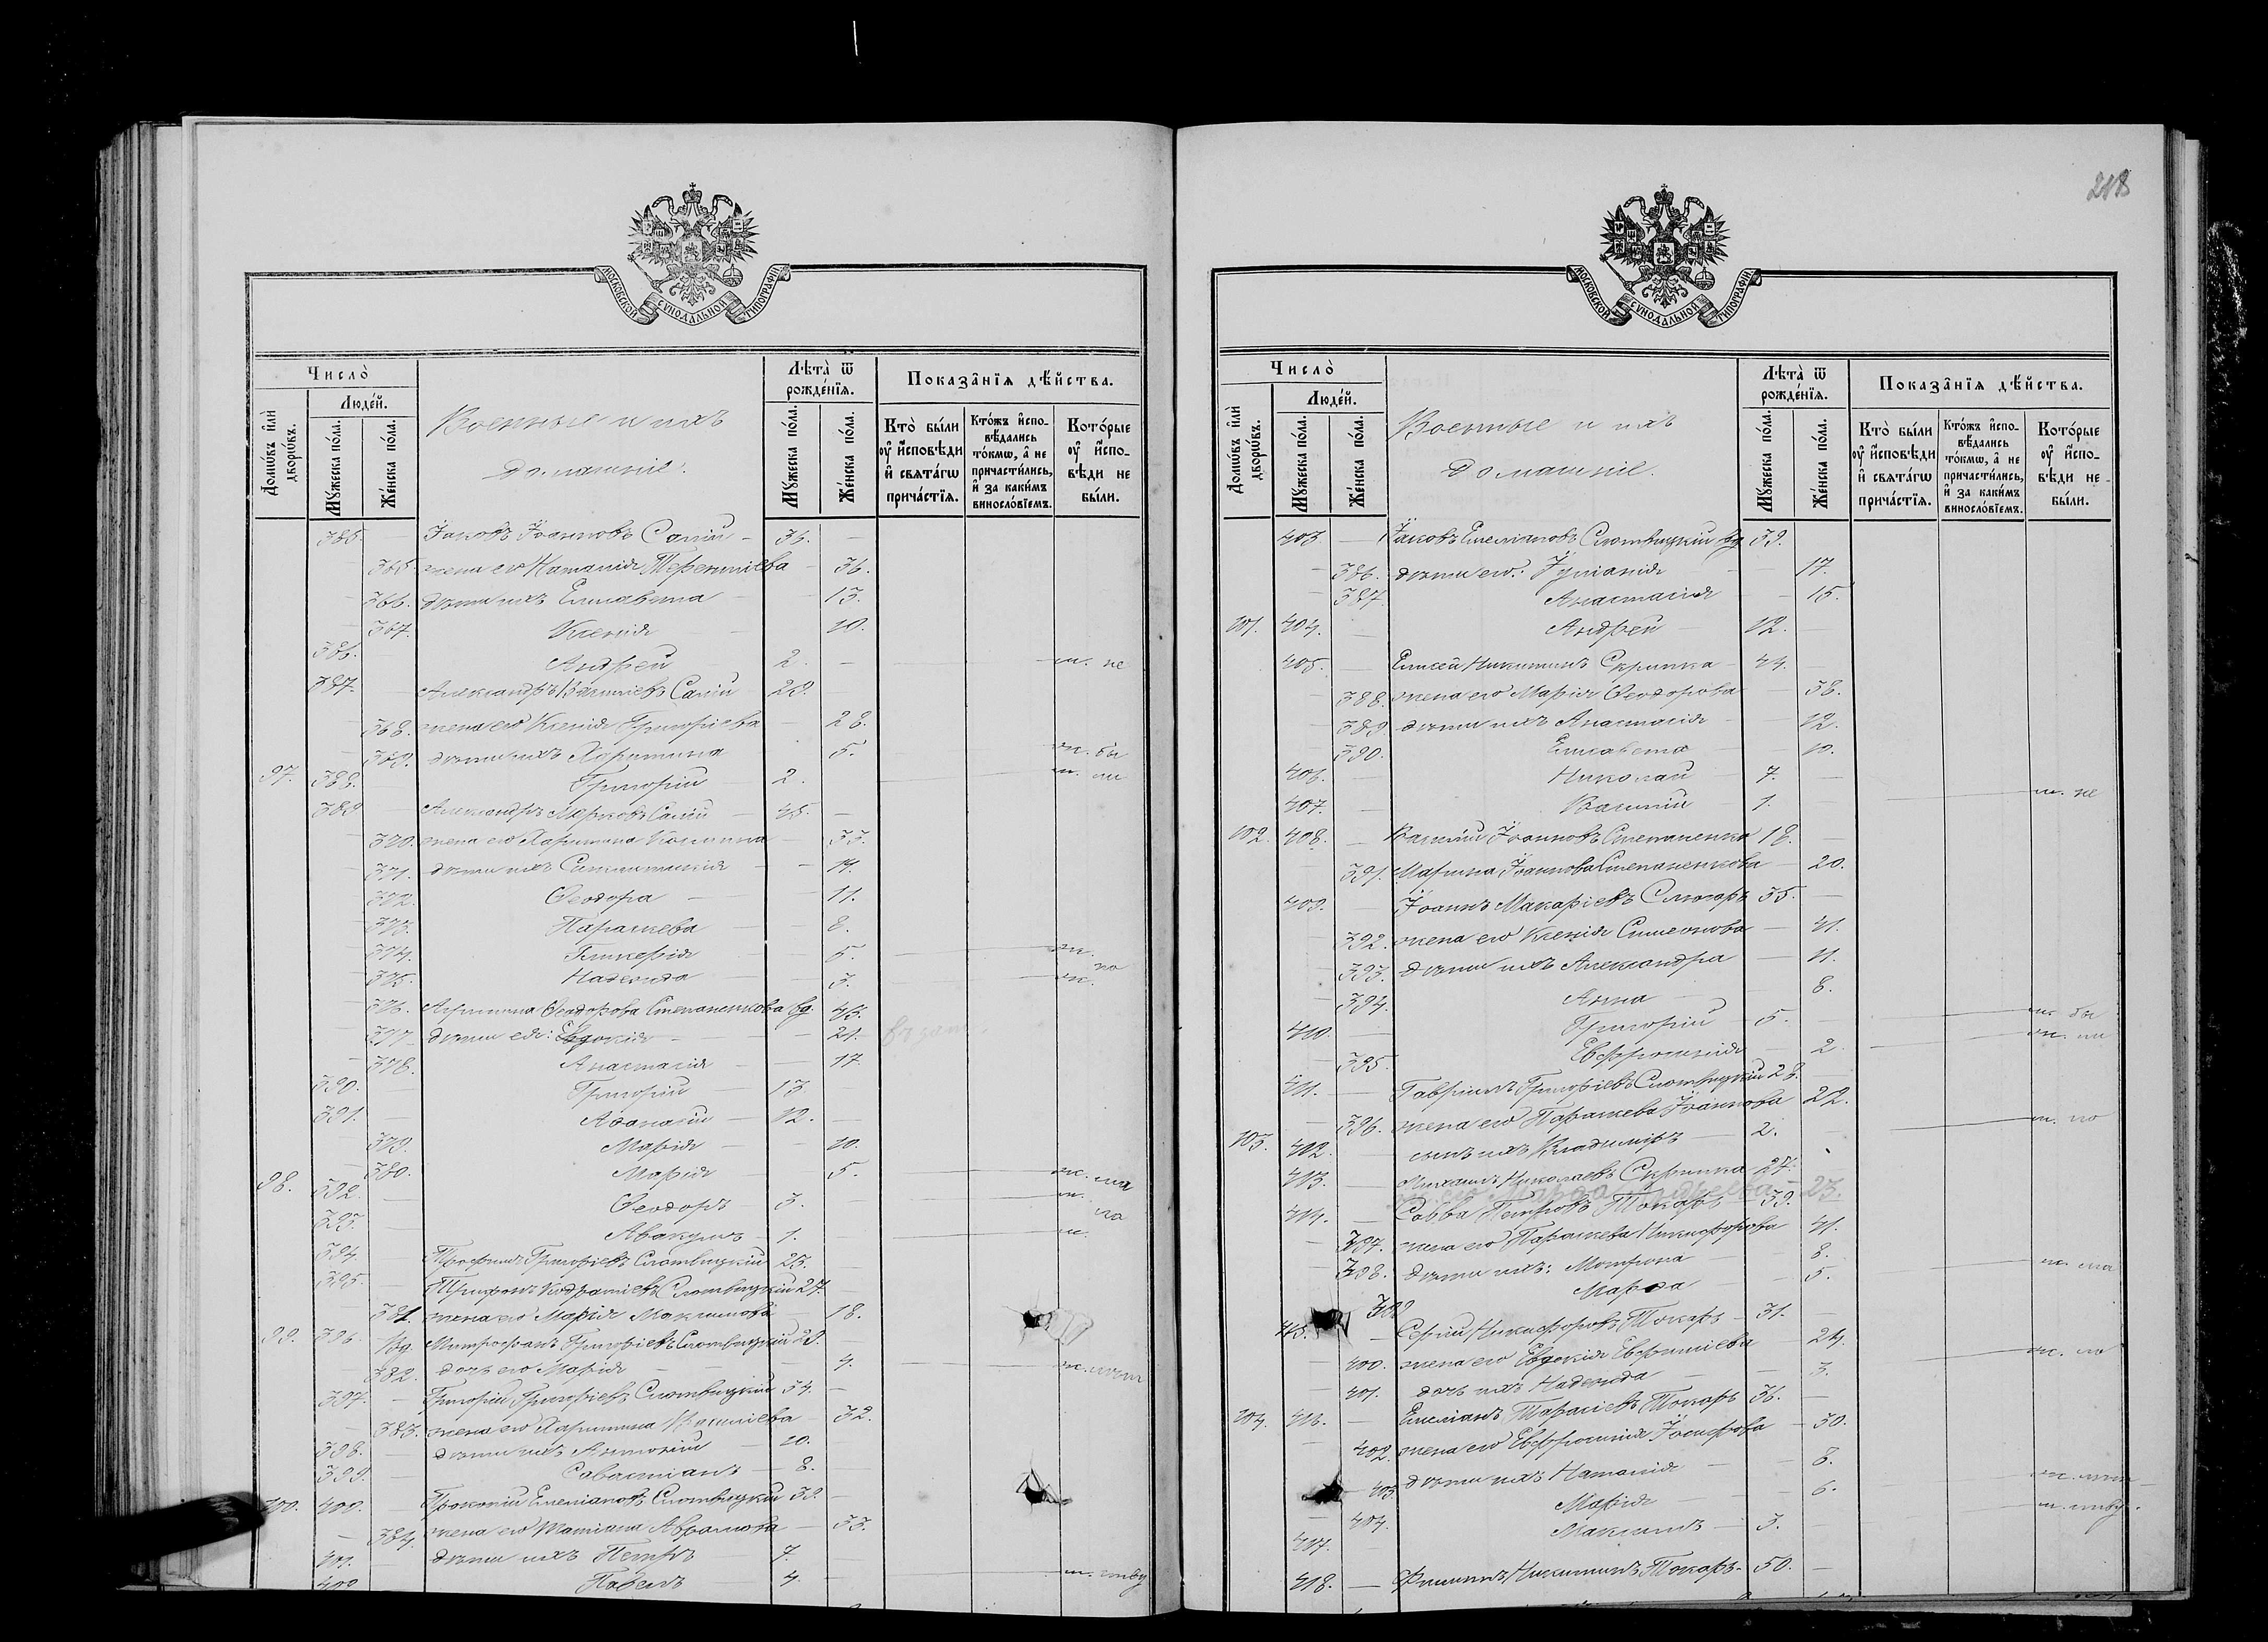 218
МОСКОВСКОЙ СѴНОДАЛЬНОЙ ТИПОГРАФІИ
Число̀
Лѣта̀ ѿ рожде́нїѧ.
Показа̑нїѧ дѣ́йства.
Домѡ́въ и҆лѝ дворѡ́въ.
Люде́й.
Мꙋ́жеска по́ла.
Же́нска по́ла.
Военные и ихъ
домашніе.
Мꙋ́жеска по́ла.
Же́нска по́ла.
Кто̀ бы́ли оу҆ и҆́сповѣди и҆ свѧта́гѡ прича́стїѧ.
Кто́жъ и҆спо-вѣ́дались то́кмѡ, а҆ не причасти́лись, и҆ за каки́мъ виносло́вїемъ.
Кото́рые оу҆ и҆спо-вѣди не бы́ли.
385. Іаковъ Іоанновъ Салій 36.
365. жена его Наталія Терентіева 36.
366. дѣти ихъ Елисавета 13.
367. Ксенія 10.
386. Андрей 2. м. не
387. Александръ Василіевъ Салій 29.
368. жена его Ксенія Григоріева 28.
369. дѣти ихъ Харитина 5. м. бы
97. 388. Григорій 2. м. ли
389. Александръ Марковъ Салій 45.
370. жена его Харитина 33.
371. дѣти ихъ Синклитикія 14.
372. Ѳеодора 11.
373. Параскева 8.
374. Гликерія 5.
375. Надежда 3. по
376. Агрипина Ѳеодорова Степаненкова вд. 45.
377. дѣти ея: Евдокія 21.
378. Анастасія 17.
390. Григорій 13.
391. Аѳанасій 12.
379. Марія 10.
380. Марія 5. ма
98. 392. Ѳеодоръ 3. ло
393. Авакумъ 1.
394. Трофимъ Григоріевъ Слотвицкій 25.
395. Трифонъ Кодратіевъ Слотвицкій 27.
381. жена его Марія Максимова 18.
99. 396. вд. Митрофанъ Григоріевъ Слотвицкій 29.
382. дочь его Марія 4.
397. Григорій Григоріевъ Слотвицкій 34.
383. жена его Харитина Василіева 32.
398. дѣти ихъ Антоній 10.
399. Савастіанъ 8.
100. 400. Прокопій Емеліановъ Слотвицкій 39.
384. жена его Татіана Аврамова 33.
401. дѣти ихъ Петръ 7.
402 Павелъ 4.
МОСКОВСКОЙ СѴНОДАЛЬНОЙ ТИПОГРАФІИ
Число̀
Лѣта̀ ѿ рожде́нїѧ.
Показа̑нїѧ дѣ́йства.
Домѡ́въ и҆лѝ дворѡ́въ.
Люде́й.
Мꙋ́жеска по́ла.
Же́нска по́ла.
Военные и ихъ
домашніе.
Мꙋ́жеска по́ла.
Же́нска по́ла.
Кто̀ бы́ли оу҆ и҆́сповѣди и҆ свѧта́гѡ прича́стїѧ.
Кто́жъ и҆спо-вѣ́дались то́кмѡ, а҆ не причасти́лись, и҆ за каки́мъ виносло́вїемъ.
Кото́рые оу҆ и҆спо-вѣди не бы́ли.
403 Іаковъ Емеліановъ Слотвицкій вд 39.
386. дѣти его: Іуліанія 17.
387. Анастасія 15.
101. 404. Андрей 12.
405. Елисей Никитинъ Скрипка 44.
388. жена его Марія Ѳеодорова 38.
389 дѣти ихъ Анастасія 12.
390. Елисавета 10.
406. Николай 7.
407. Василій 1. м. не
102. 408. Василій Іоанновъ Степаненко 18.
391. Марина Іоаннова Степаненкова 20.
409. Іоаннъ Макаріевъ Слюсарь 35.
392. жена его Ксенія Симеонова 41.
393. дѣти ихъ Александра 11.
394. Анна 8.
410. Григорій 5. м. бы
395. Евфросинія 2. ли
411. Гавріилъ Григоріевъ Слотвицкій 28.
396. жена его Параскева Іоаннова 22.
103. 412. сынъ ихъ Владиміръ 2. м. по
413. Михаилъ Николаевъ Скрипка 27.
23.
414. Савва Петровъ Токарь 39.
397. жена его Параскева Никифорова 41.
398. дѣти ихъ: Мотрона 8.
399 Марѳа 5. ма
415. Сергій Никифоровъ Токарь 31.
400. жена его Евдокія Евфиміева 24.
401. дочь ихъ Надежда 3. ло
104. 416. Емеліанъ Тарасіевъ Токарь 36.
402. жена его Евфросинія Іосифова 30.
403. дѣти ихъ Наталія 8.
404. Марія 6.
417. Максимъ 3.
418. Филиппъ Никитинъ Токарь 50.